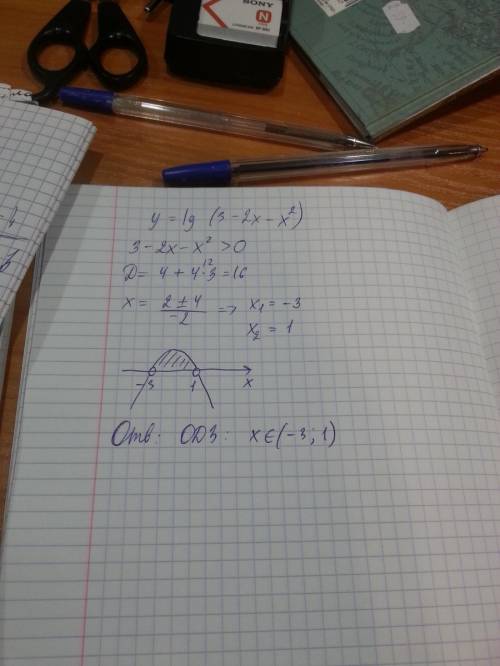 SONY
N
y = lg (3 - 2x - x²)
3 - 2x - x² > 0
D = 4 + 4·3 = 16
12
x = (2 ± 4)/(-2) => x₁ = -3
x₂ = 1
-3 1 x
Отв: ОДЗ: x∈(-3; 1)